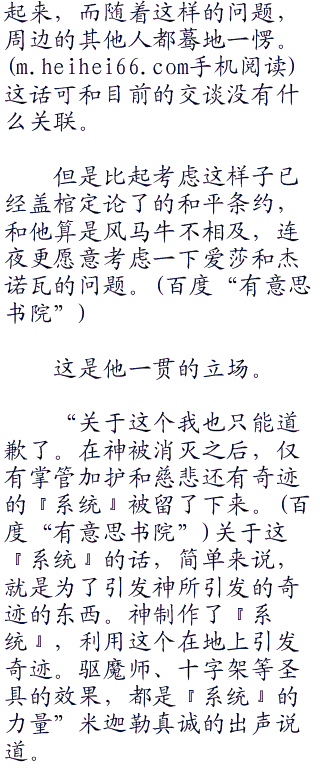 起来，而随着这样的问题，
周边的其他人都蓦地一愣。
(m.heihei66.com手机阅读)
这话可和目前的交谈没有什
么关联。
但是比起考虑这样子已
经盖棺定论了的和平条约，
和他算是风马牛不相及，连
夜更愿意考虑一下爱莎和杰
诺瓦的问题。(百度“有意思
书院”)
这是他一贯的立场。
“关于这个我也只能道
歉了。在神被消灭之后，仅
有掌管加护和慈悲还有奇迹
的『系统』被留了下来。(百
度“有意思书院”)关于这
『系统』的话，简单来说，
就是为了引发神所引发的奇
迹的东西。神制作了『系
统』，利用这个在地上引发
奇迹。驱魔师、十字架等圣
具的效果，都是『系统』的
力量”米迦勒真诚的出声说
道。